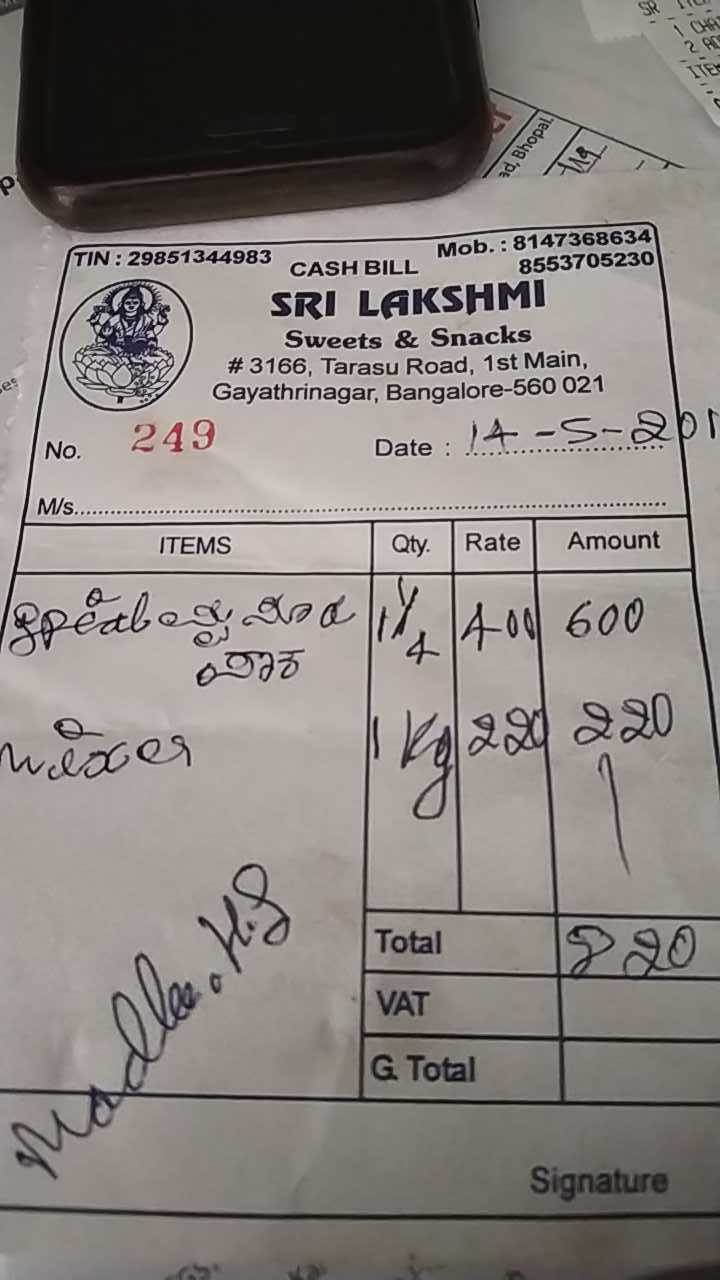 SR ITE
1 CHA
2 AD
ITEM
ad, Bhopal.
TIN : 29851344983
CASH BILL
Mob. : 8147368634
8553705230
SRI LAKSHMI
Sweets & Snacks
# 3166, Tarasu Road, 1st Main,
Gayathrinagar, Bangalore-560 021
No. 249
Date : 14-5-201
M/s.
ITEMS Qty. Rate Amount
1 1/4 400 600
ಪಾಕ
ಮಿಕ್ಚರ್ 1 Kg 220 220
Total 820
VAT
G. Total
Madhu.H.S
Signature